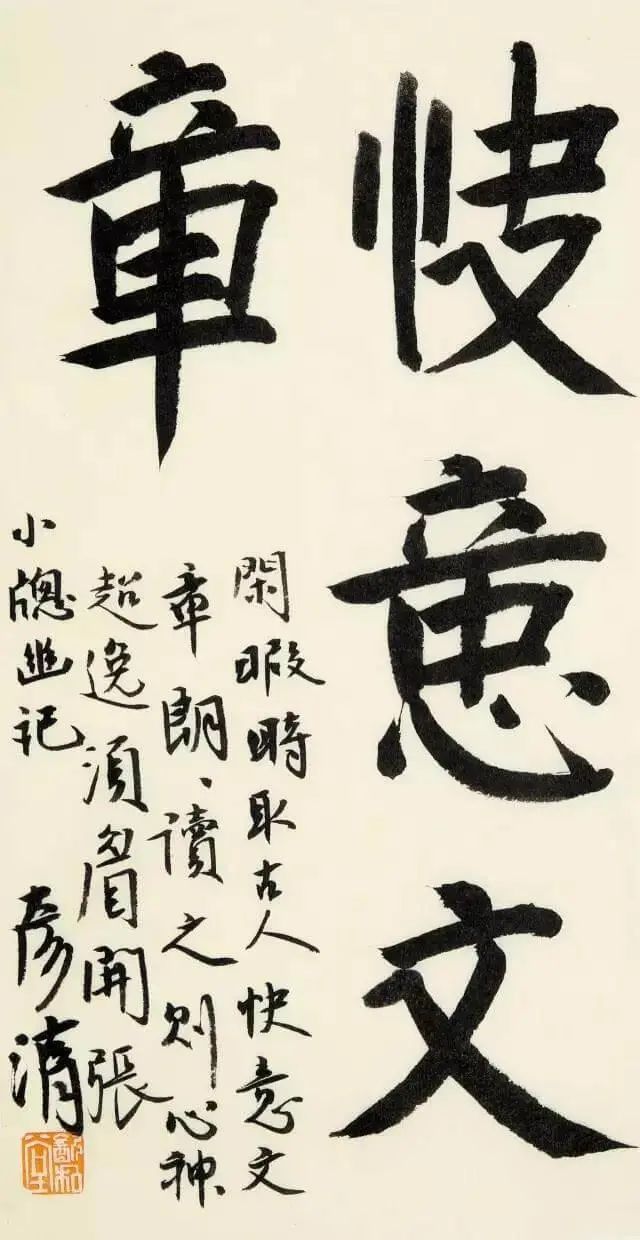 快意文
章
閑暇時取古人快意文
章朗、讀之則心神
超逸須眉開張
小窗幽記
彥清